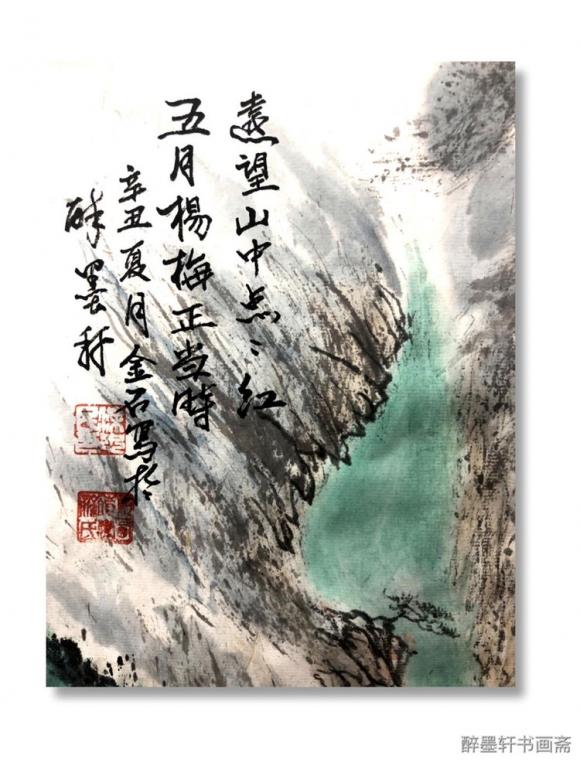 遠望山中点点红
五月楊梅正当時
辛丑夏月金石写於
醉墨轩
醉墨轩书画斋